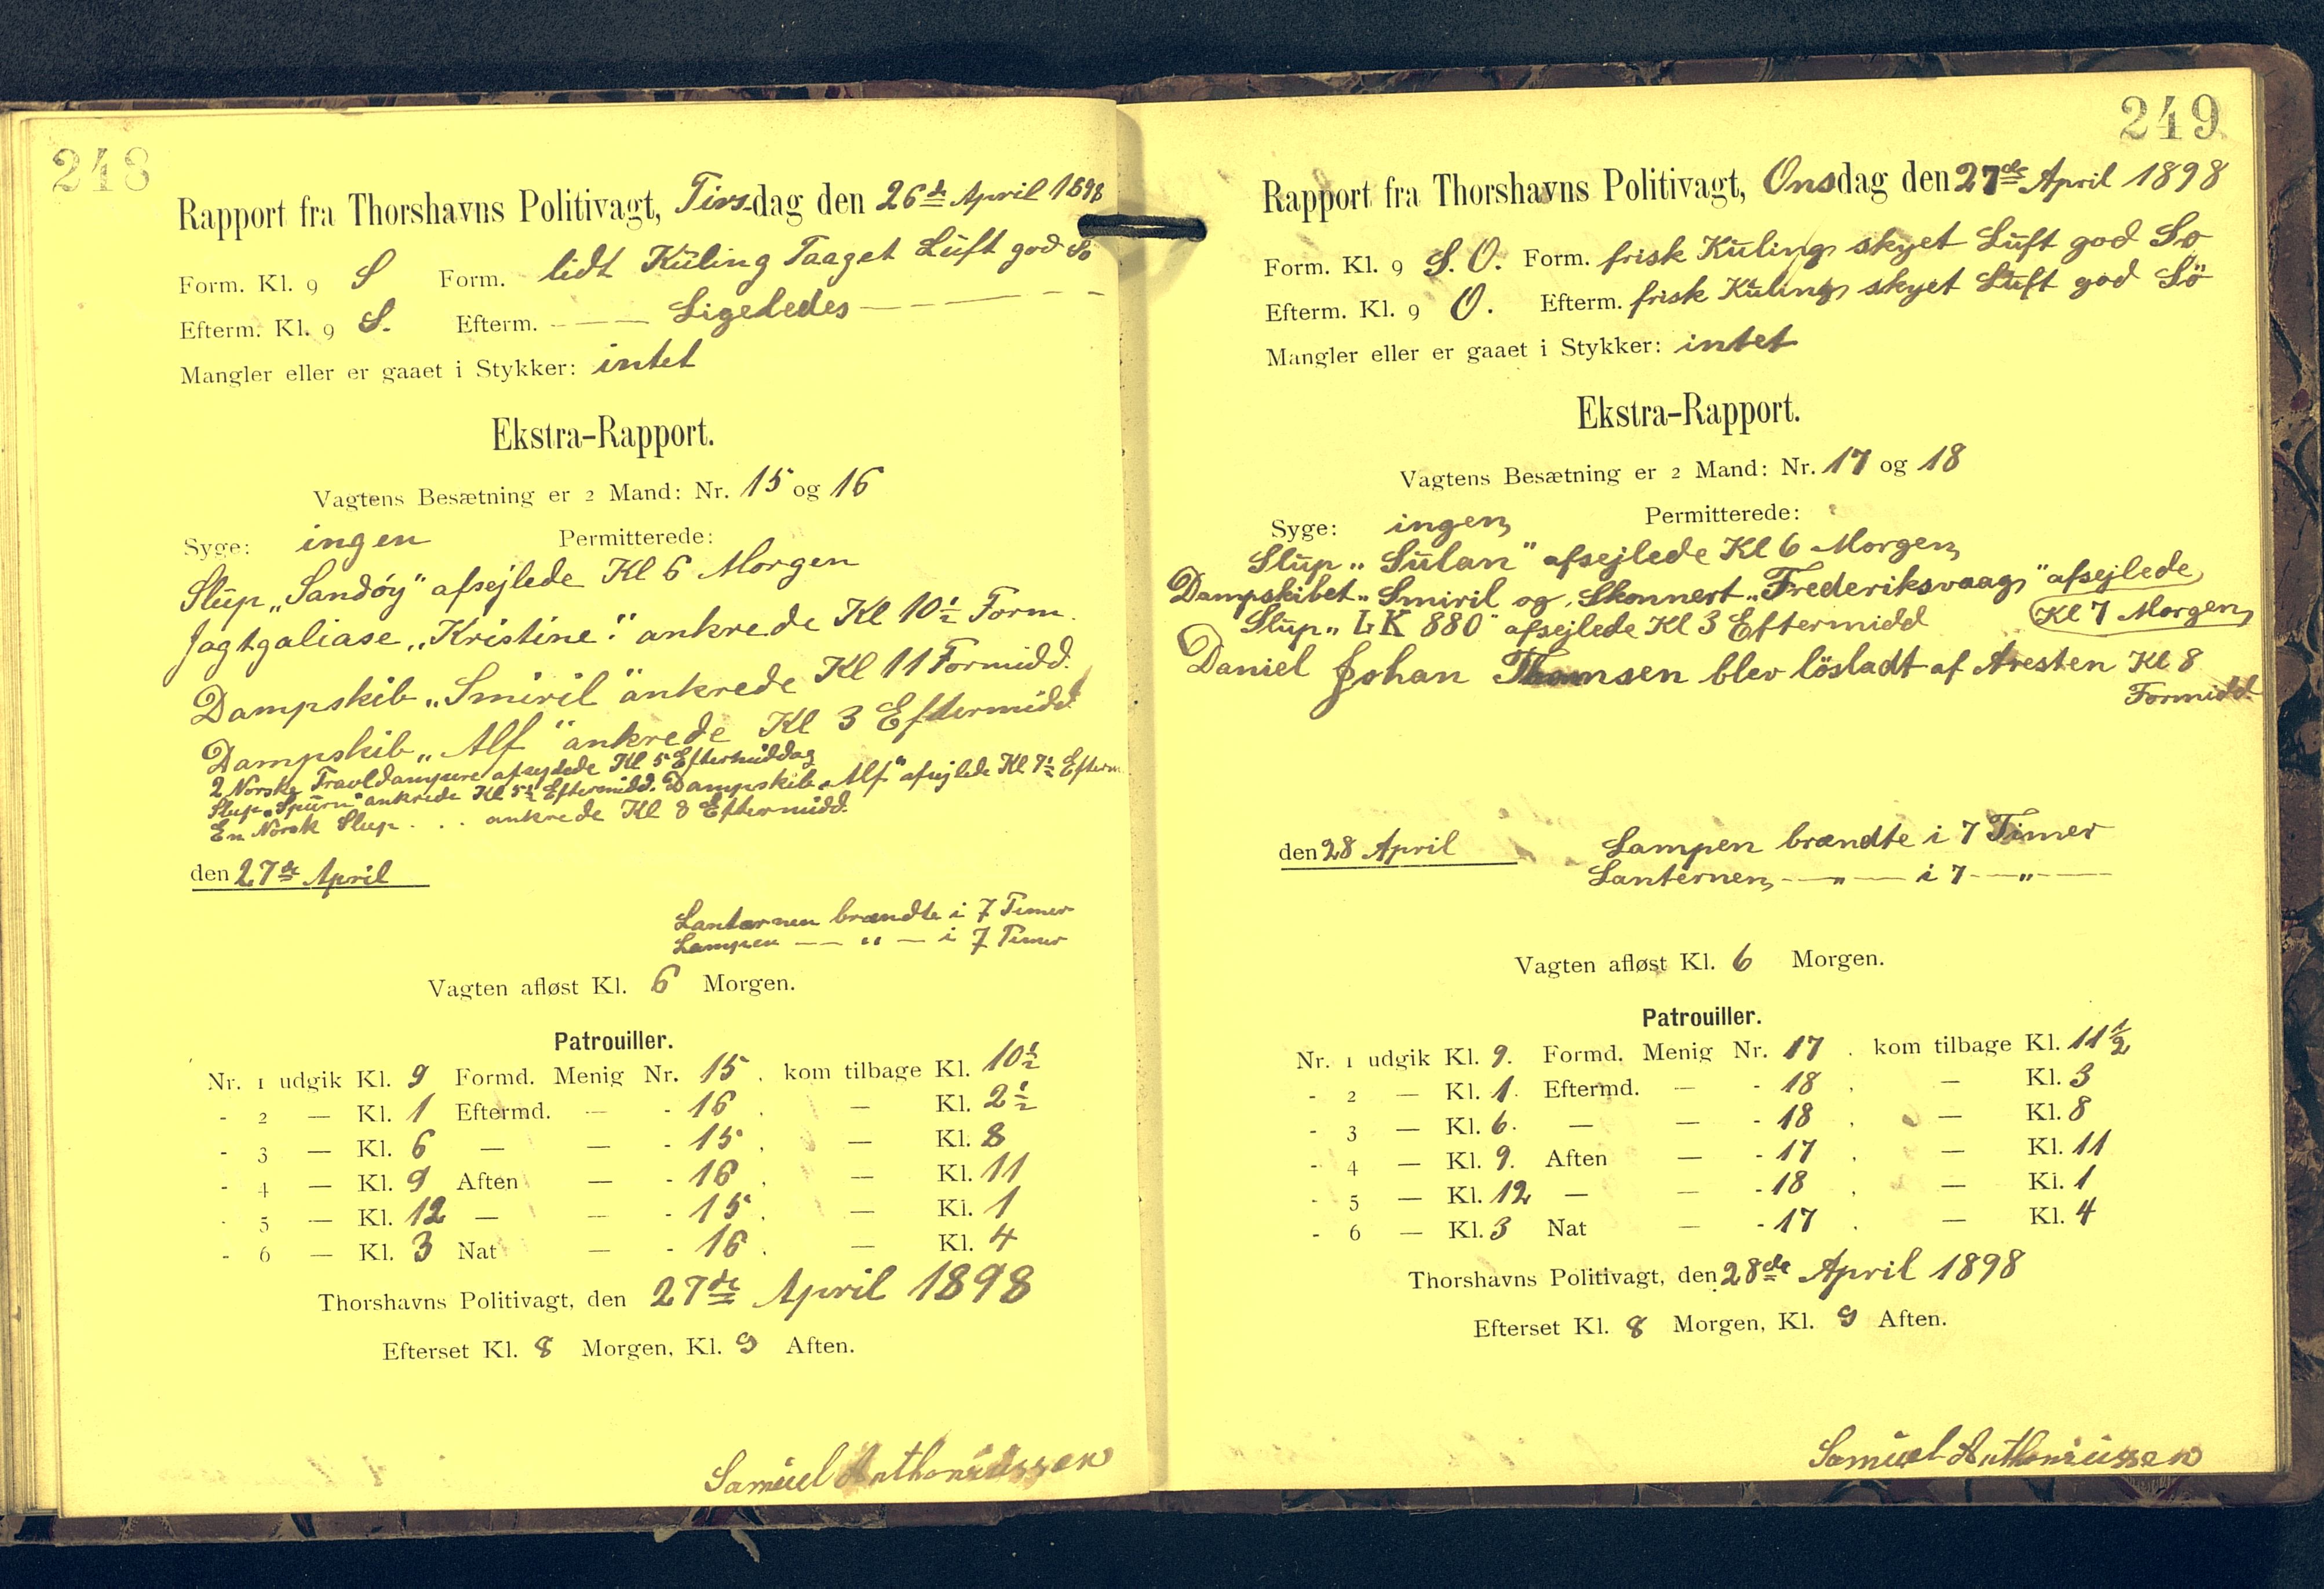 248
Rapport fra Thorshavns Politivagt, Tirsdag den 26de April 1898
Form. Kl. 9 S Form. lidt Kuling Taaget Luft god Sø
Efterm. Kl. 9 S. Efterm. - — — Ligeledes — — — — -
Mangler eller er gaaet i Stykker: intet
Ekstra-Rapport.
Vagtens Besætning er 2 Mand: Nr. 15 og 16
Syge: ingen Permitterede:
Slup „Sandöy" afsejlede Kl 6 Morgen
Jagtgaliase „Kristine." ankrede Kl 10½ Form.
Dampskib „Smiril" ankrede Kl 11 Formidd.
Dampskib „Alf" ankrede Kl 3 Eftermidd
2 Norske Travldampere afsejlede Kl 5 Eftermiddag
Slup „Spurn" ankrede Kl 5½ Eftermidd. Dampskib „Alf" afsejlede Kl 7½ Efterm.
En Norsk Slup . . . ankrede Kl 8 Eftermidd.
den 27de April
Lanternen brændte i 7 Timer
Lampen — — " — i 7 Timer
Vagten afløst Kl. 6 Morgen.
Patrouiller.
Nr. 1 udgik Kl. 9 Formd. Menig Nr. 15 . kom tilbage Kl. 10½
- 2 — Kl. 1 Eftermd. — - 16 . — Kl. 2½
- 3 — Kl. 6 — — - 15 . — Kl. 8
- 4 — Kl. 9 Aften — - 16 . — Kl. 11
- 5 — Kl. 12 — — - 15 . — Kl. 1
- 6 — Kl. 3 Nat — - 16 . — Kl. 4
Thorshavns Politivagt, den 27de April 1898
Efterset Kl. 8 Morgen, Kl. 9 Aften.
Samuel Anthoniussen
249
Rapport fra Thorshavns Politivagt, Onsdag den 27de April 1898
Form. Kl. 9 S. O. Form. frisk Kuling skyet Luft god Sø
Efterm. Kl. 9 O. Efterm. frisk Kuling skyet Luft god Sö
Mangler eller er gaaet i Stykker: intet
Ekstra-Rapport.
Vagtens Besætning er 2 Mand: Nr. 17 og 18
Syge: ingen Permitterede:
Slup „Sulan" afsejlede Kl 6 Morgen
Dampskibet „Smiril og Skonnert „Frederiksvaag" afsejlede
Kl 7 Morgen
Slup „LK 880" afsejlede Kl 3 Eftermidd
Daniel Johan Thomsen blev lösladt af Aresten Kl 8
Formidd.
den 28 April
Lampen brændte i 7 Timer
Lanternen - — " — i 7 — " —
Vagten afløst Kl. 6 Morgen.
Patrouiller.
Nr. 1 udgik Kl. 9. Formd. Menig Nr. 17 . kom tilbage Kl. 11½
- 2 — Kl. 1. Eftermd. — - 18 . — Kl. 3
- 3 — Kl. 6. — — - 18 . — Kl. 8
- 4 — Kl. 9. Aften — - 17 . — Kl. 11
- 5 — Kl. 12 — — - 18 . — Kl. 1
- 6 — Kl. 3 Nat — - 17 . — Kl. 4
Thorshavns Politivagt, den 28de April 1898
Efterset Kl. 8 Morgen, Kl. 9 Aften.
Samuel Anthoniussen